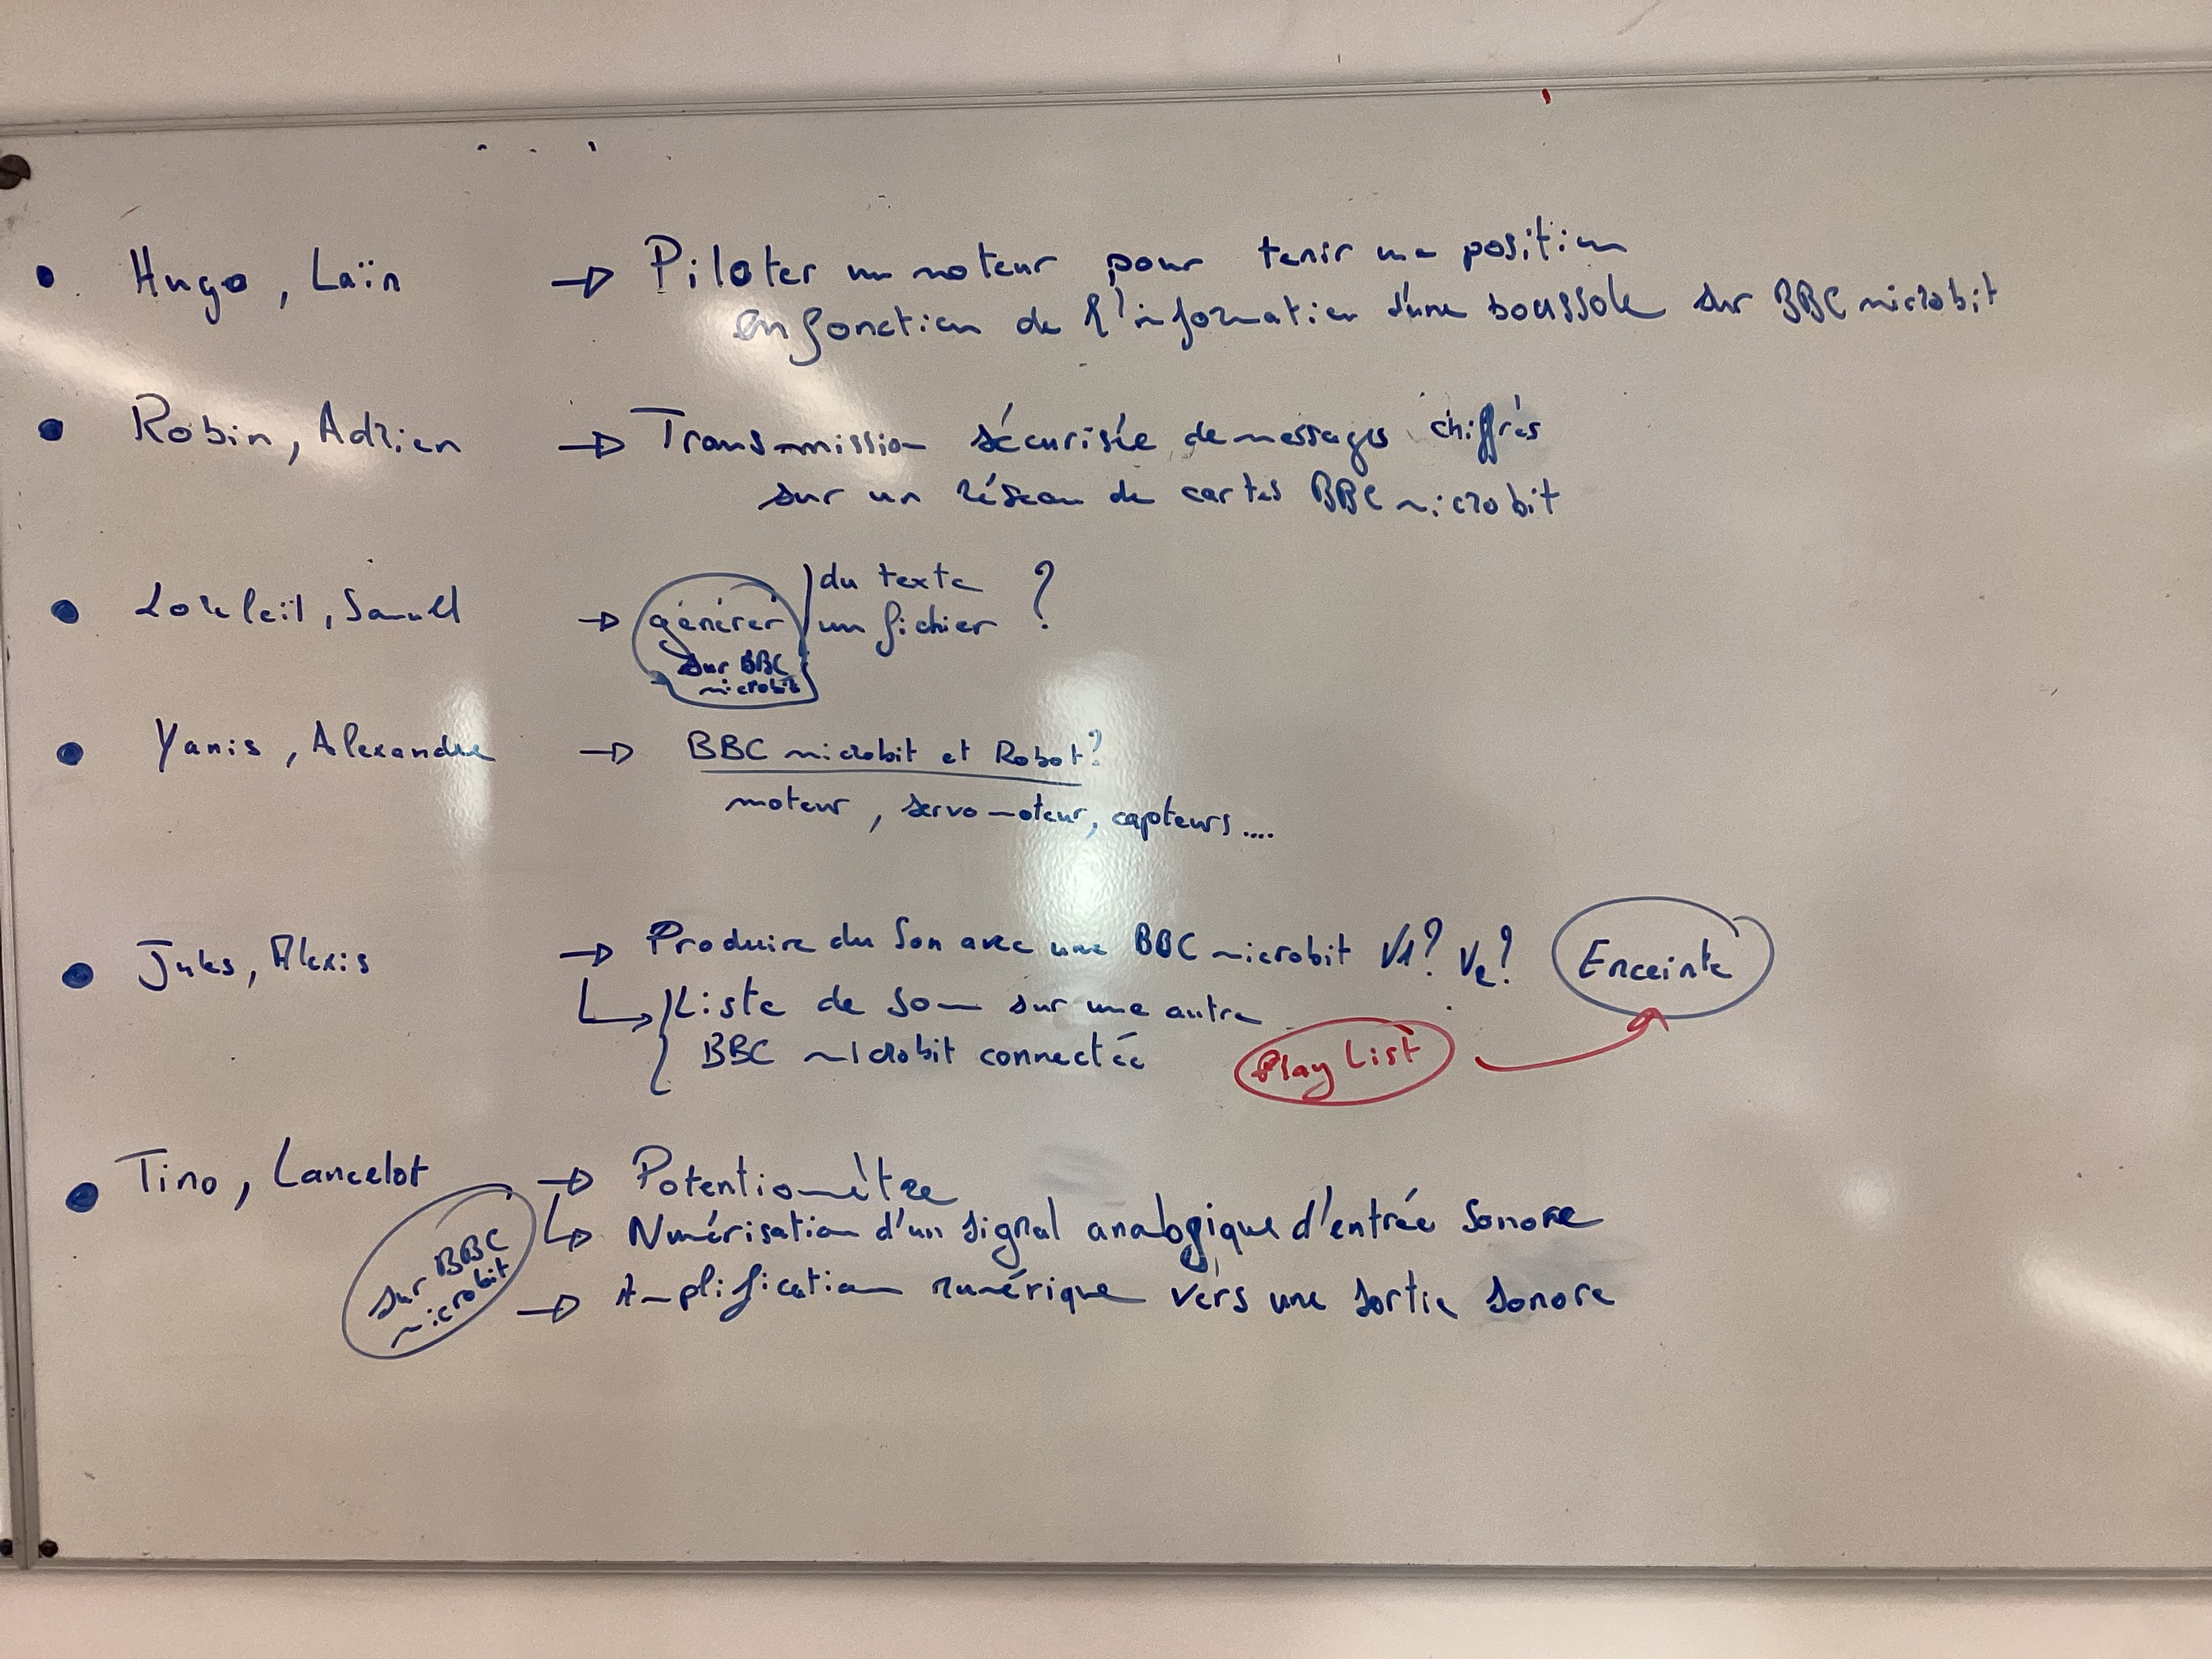 • Hugo, Laïn → Piloter un moteur pour tenir une position
en fonction de l'information d'une boussole sur BBC microbit
• Robin, Adrien → Transmission sécurisée de messages chiffrés
sur un réseau de cartes BBC microbit
• Samuel → générer du texte ?
un fichier
sur BBC
microbit
• Yanis, Alexandre → BBC microbit et Robot?
moteur, servomoteur, capteurs....
• Jules, Alexis → Produire du son avec une BBC microbit V1? V2? Enceinte
Liste de son sur une autre
BBC microbit connectée
Play List
• Tino, Lancelot → Potentiomètre
→ Numérisation d'un signal analogique d'entrée sonore
sur BBC
microbit
→ Amplification numérique vers une sortie sonore